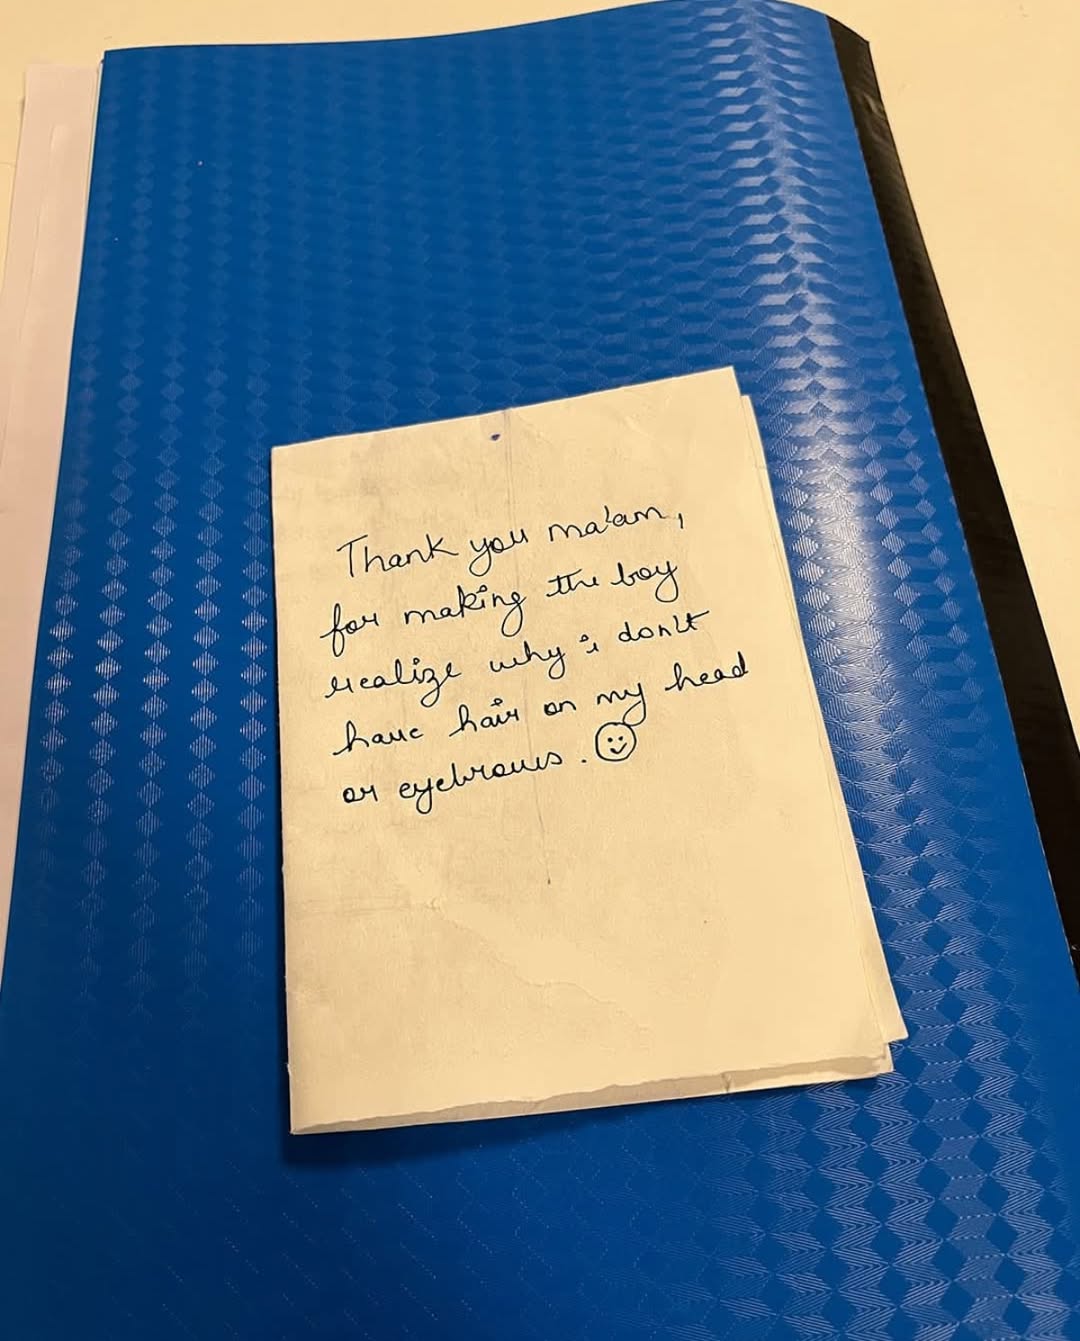 Thank you ma'am,
for making the boy
realize why i don't
have hair on my head
or eyebrows. ☺